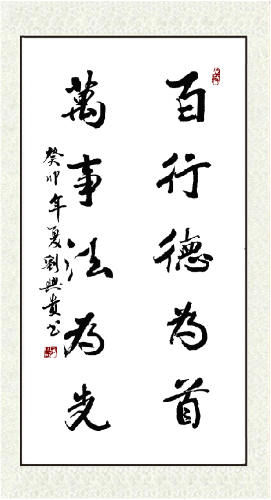 百行德为首
萬事法为先
癸卯年夏劉興貴书